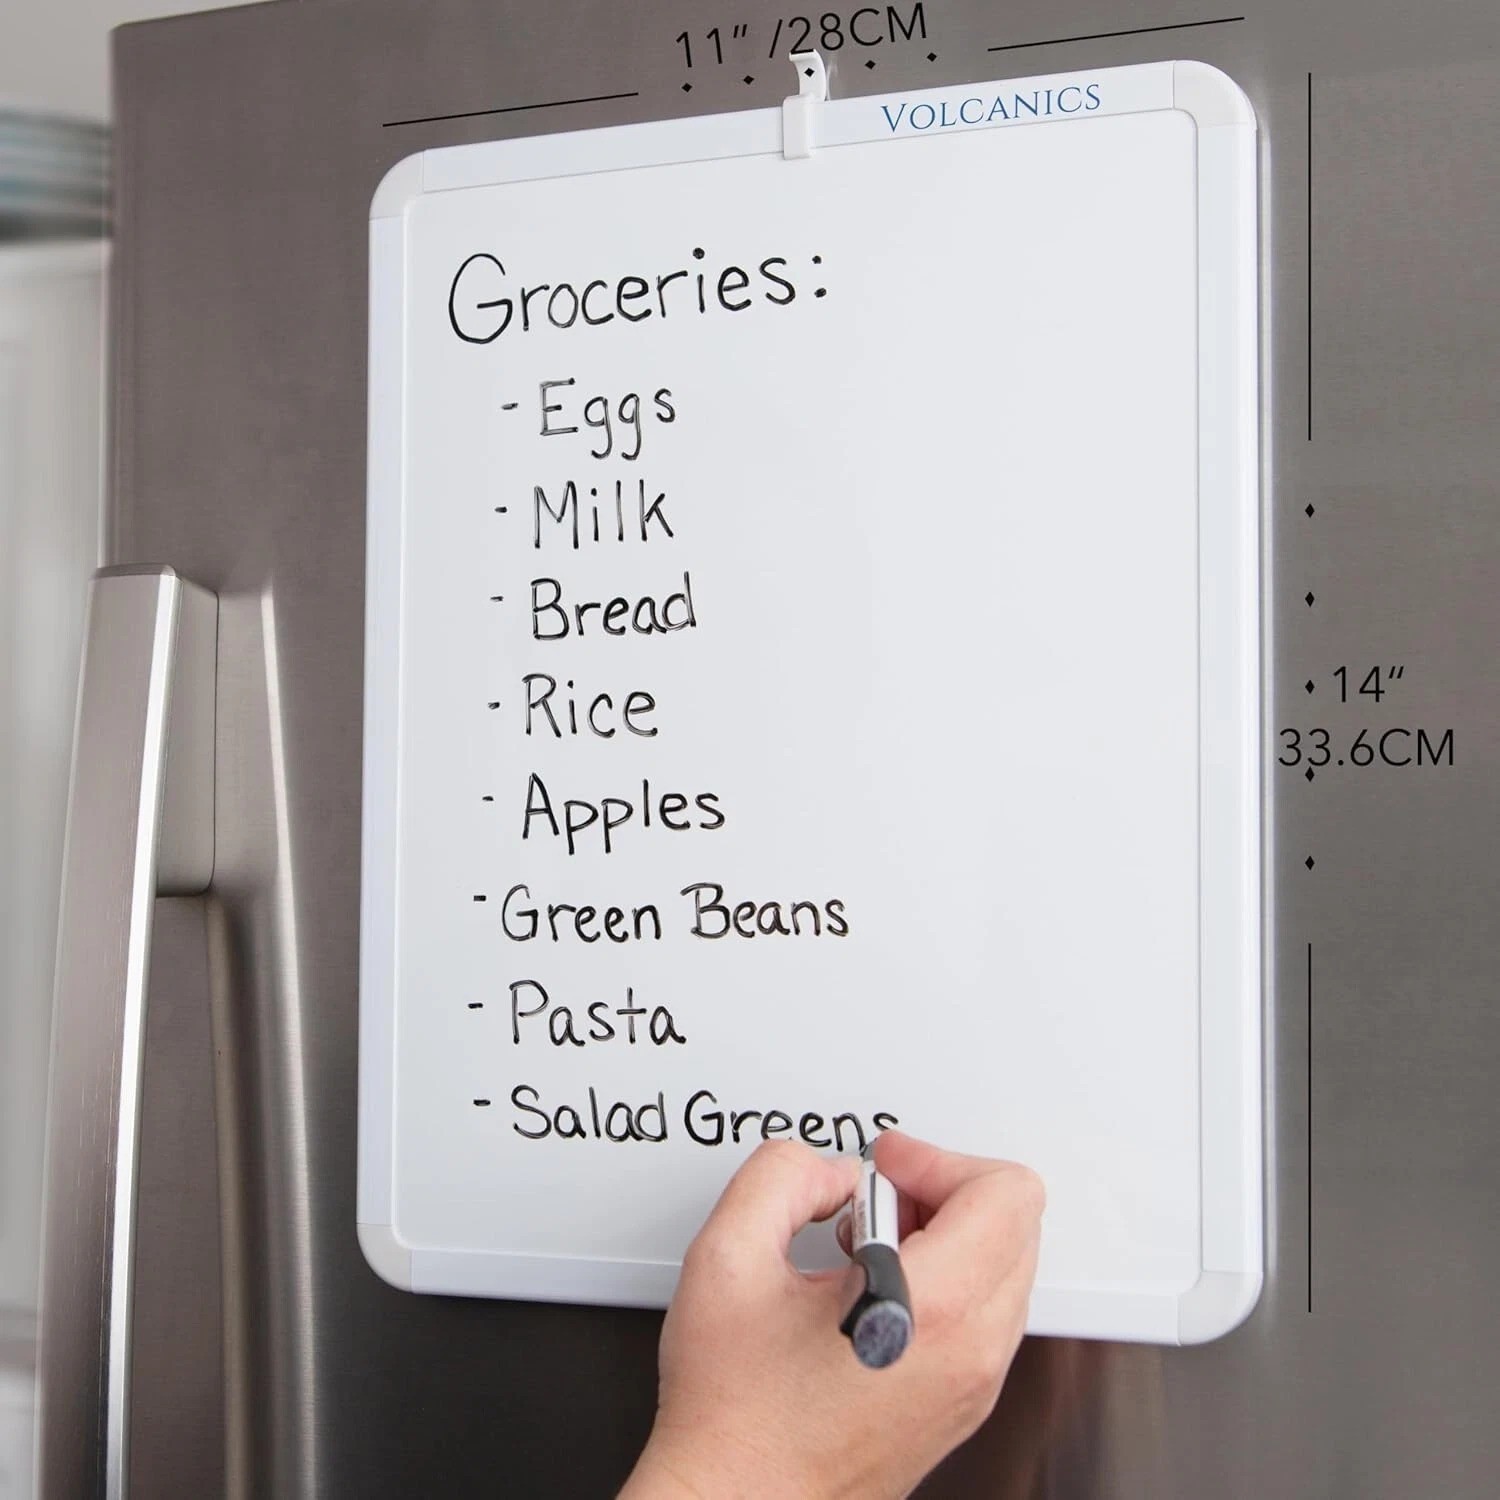 11” /28CM
VOLCANICS
Groceries:
- Eggs
- Milk
- Bread
- Rice
- Apples
- Green Beans
- Pasta
- Salad Greens
14“
33.6CM